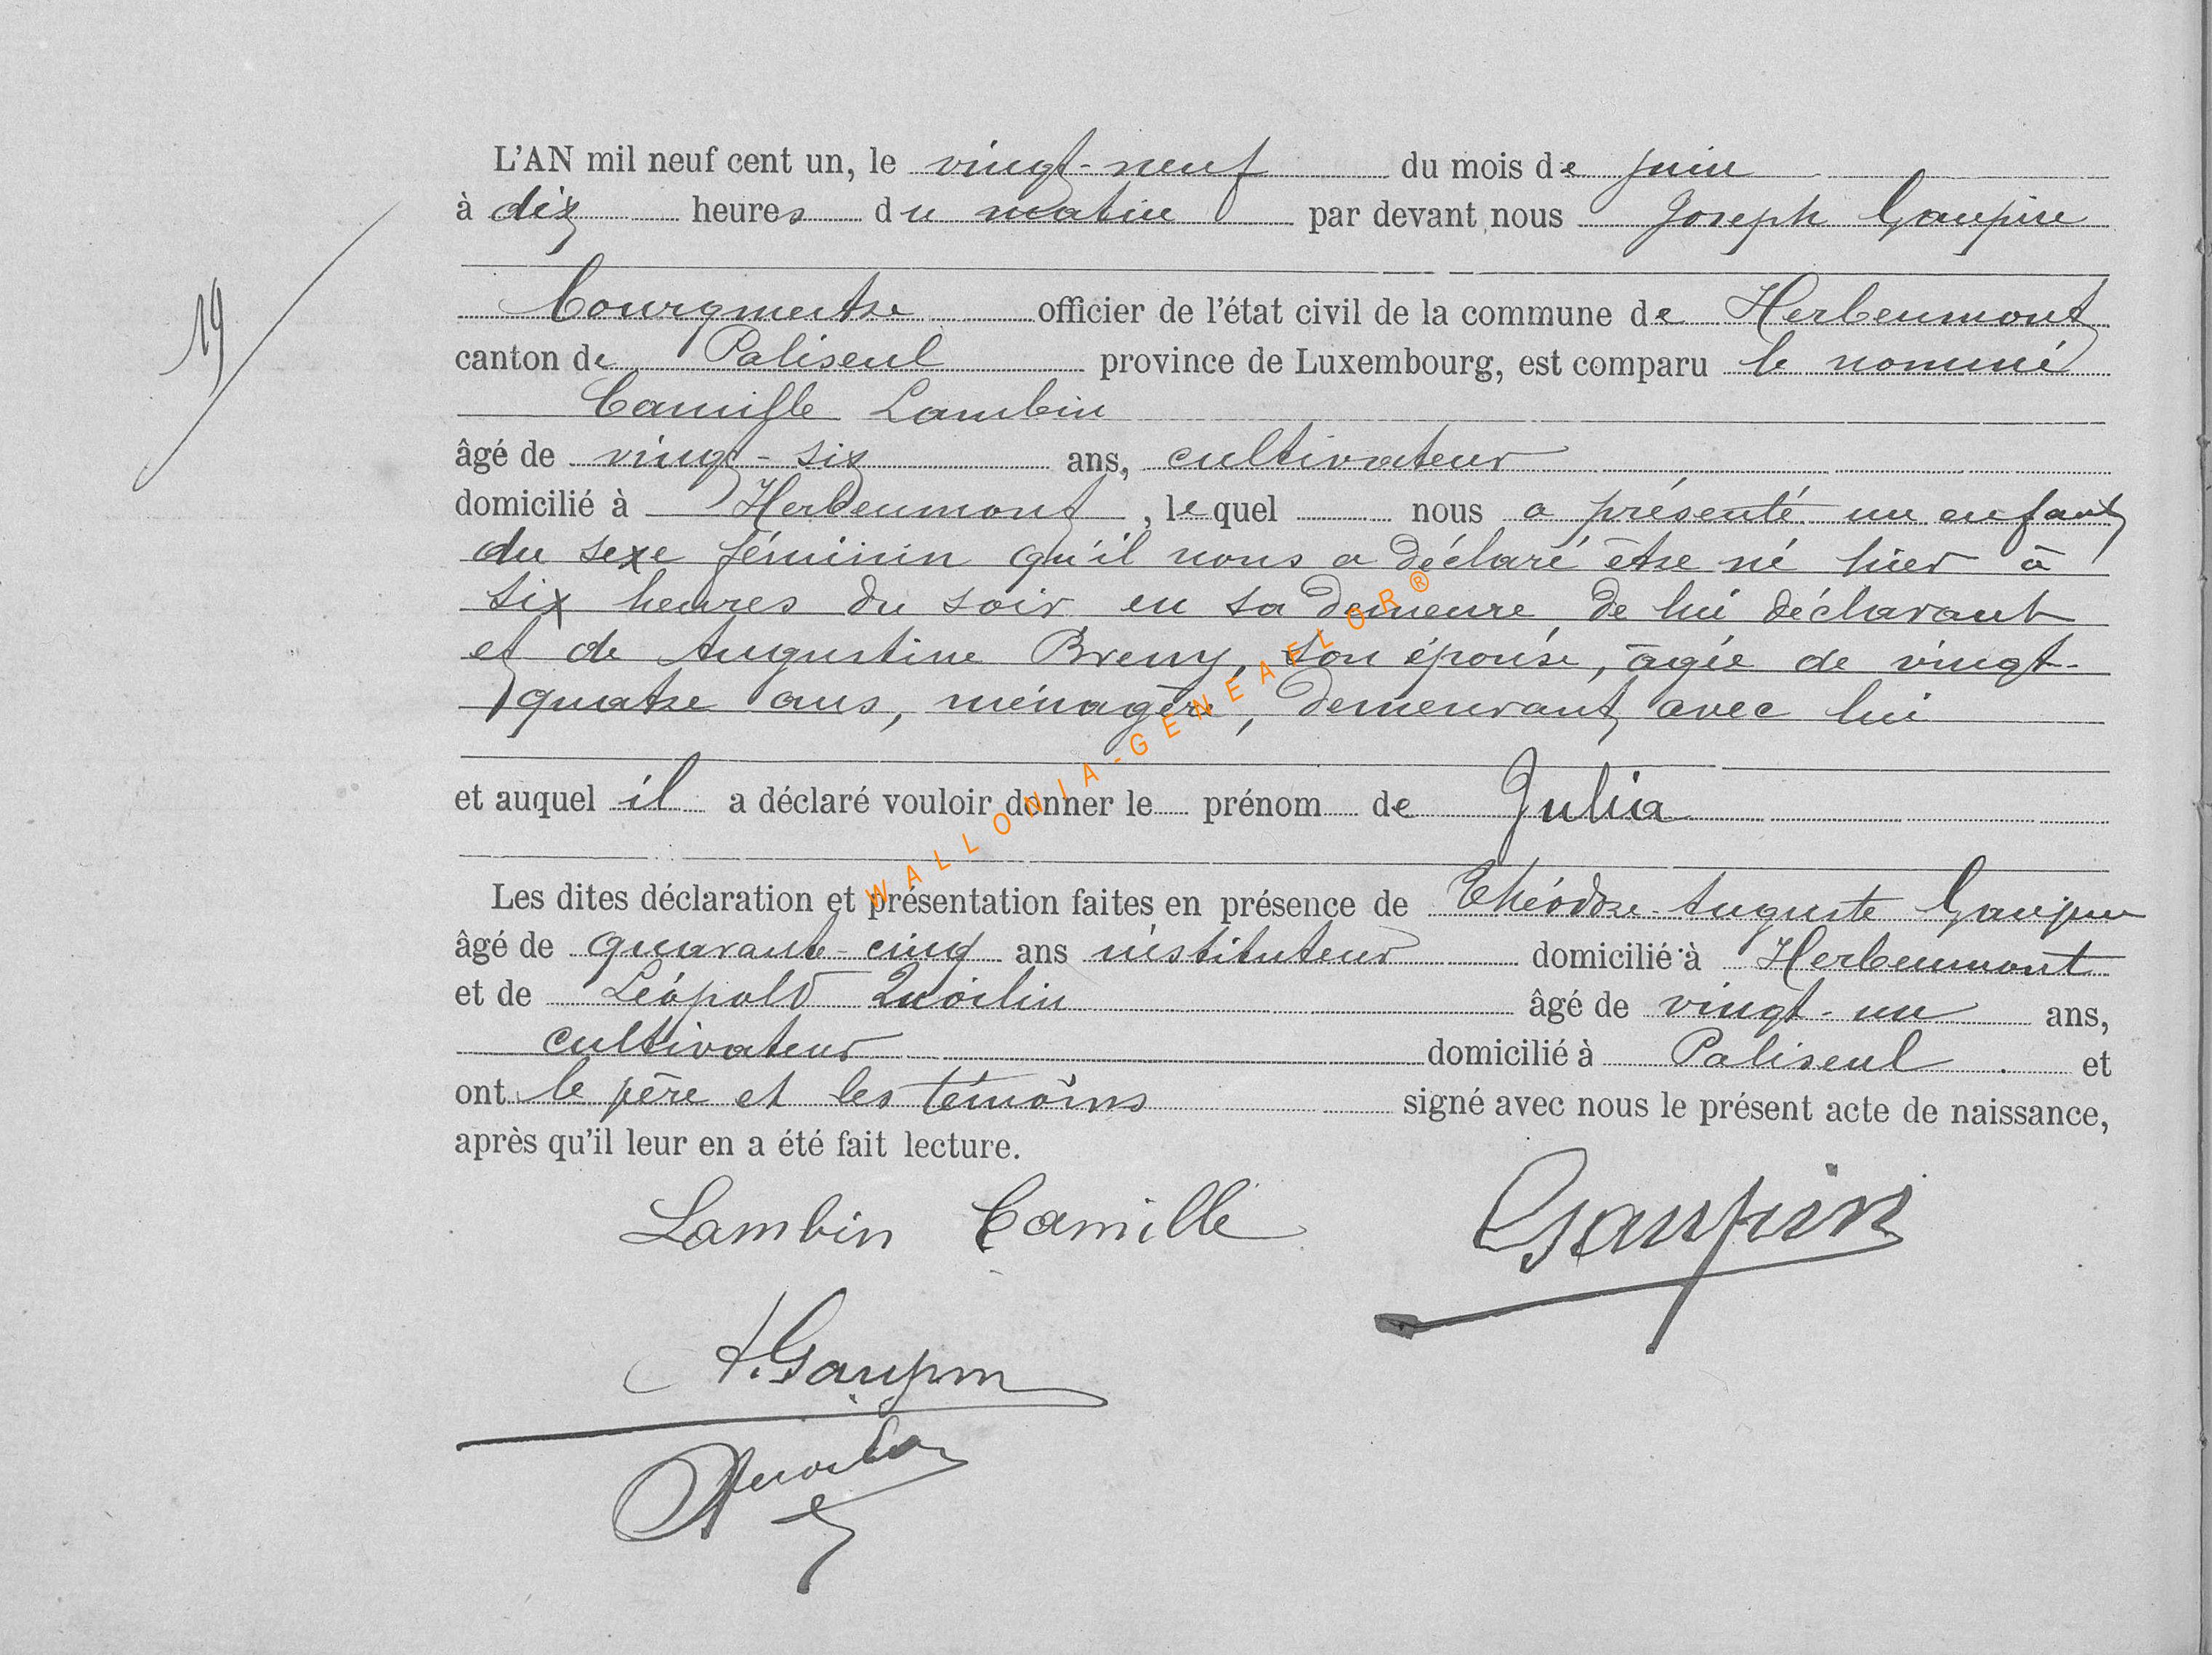 L'AN mil neuf cent un, le vingt-neuf du mois de juin
à dix heures du matin par devant nous Joseph Gaupin
bourgmestre officier de l'état civil de la commune de Herbeumont
canton de Paliseul province de Luxembourg, est comparu le nommé
Camille Lambin
âgé de vingt-six ans, cultivateur
domicilié à Herbeumont, lequel nous a présenté un enfant
du sexe féminin qu'il nous a déclaré être né hier à
six heures du soir en sa demeure de lui déclarant
et de Augustine Breny, son épouse, âgée de vingt-
quatre ans, ménagère, demeurant avec lui
et auquel il a déclaré vouloir donner le prénom de Julia
Les dites déclaration et présentation faites en présence de Théodore-Auguste Gaupin
âgé de quarante-cinq ans instituteur domicilié à Herbeumont
et de Léopold Quoilin âgé de vingt-un ans,
cultivateur domicilié à Paliseul et
ont le père et les témoins signé avec nous le présent acte de naissance,
après qu'il leur en a été fait lecture.
19
Lambin Camille
Gaupin
A. Gaupin
Quoilin
WALLONIA-GENEAFLOR®